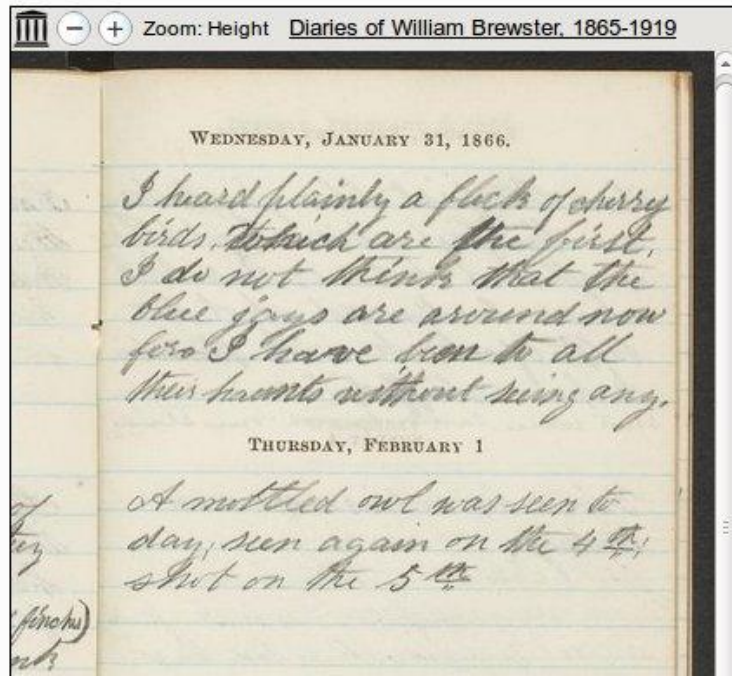 Zoom: Height Diaries of William Brewster, 1865-1919
WEDNESDAY, JANUARY 31, 1866.
I heard plainly a flock of cherry
birds, which are the first.
I do not think that the
blue jays are around now
for I have been to all
their haunts without seeing any.
THURSDAY, FEBRUARY 1
A mottled owl was seen to
day; seen again on the 4th;
shot on the 5th
of
finchs)